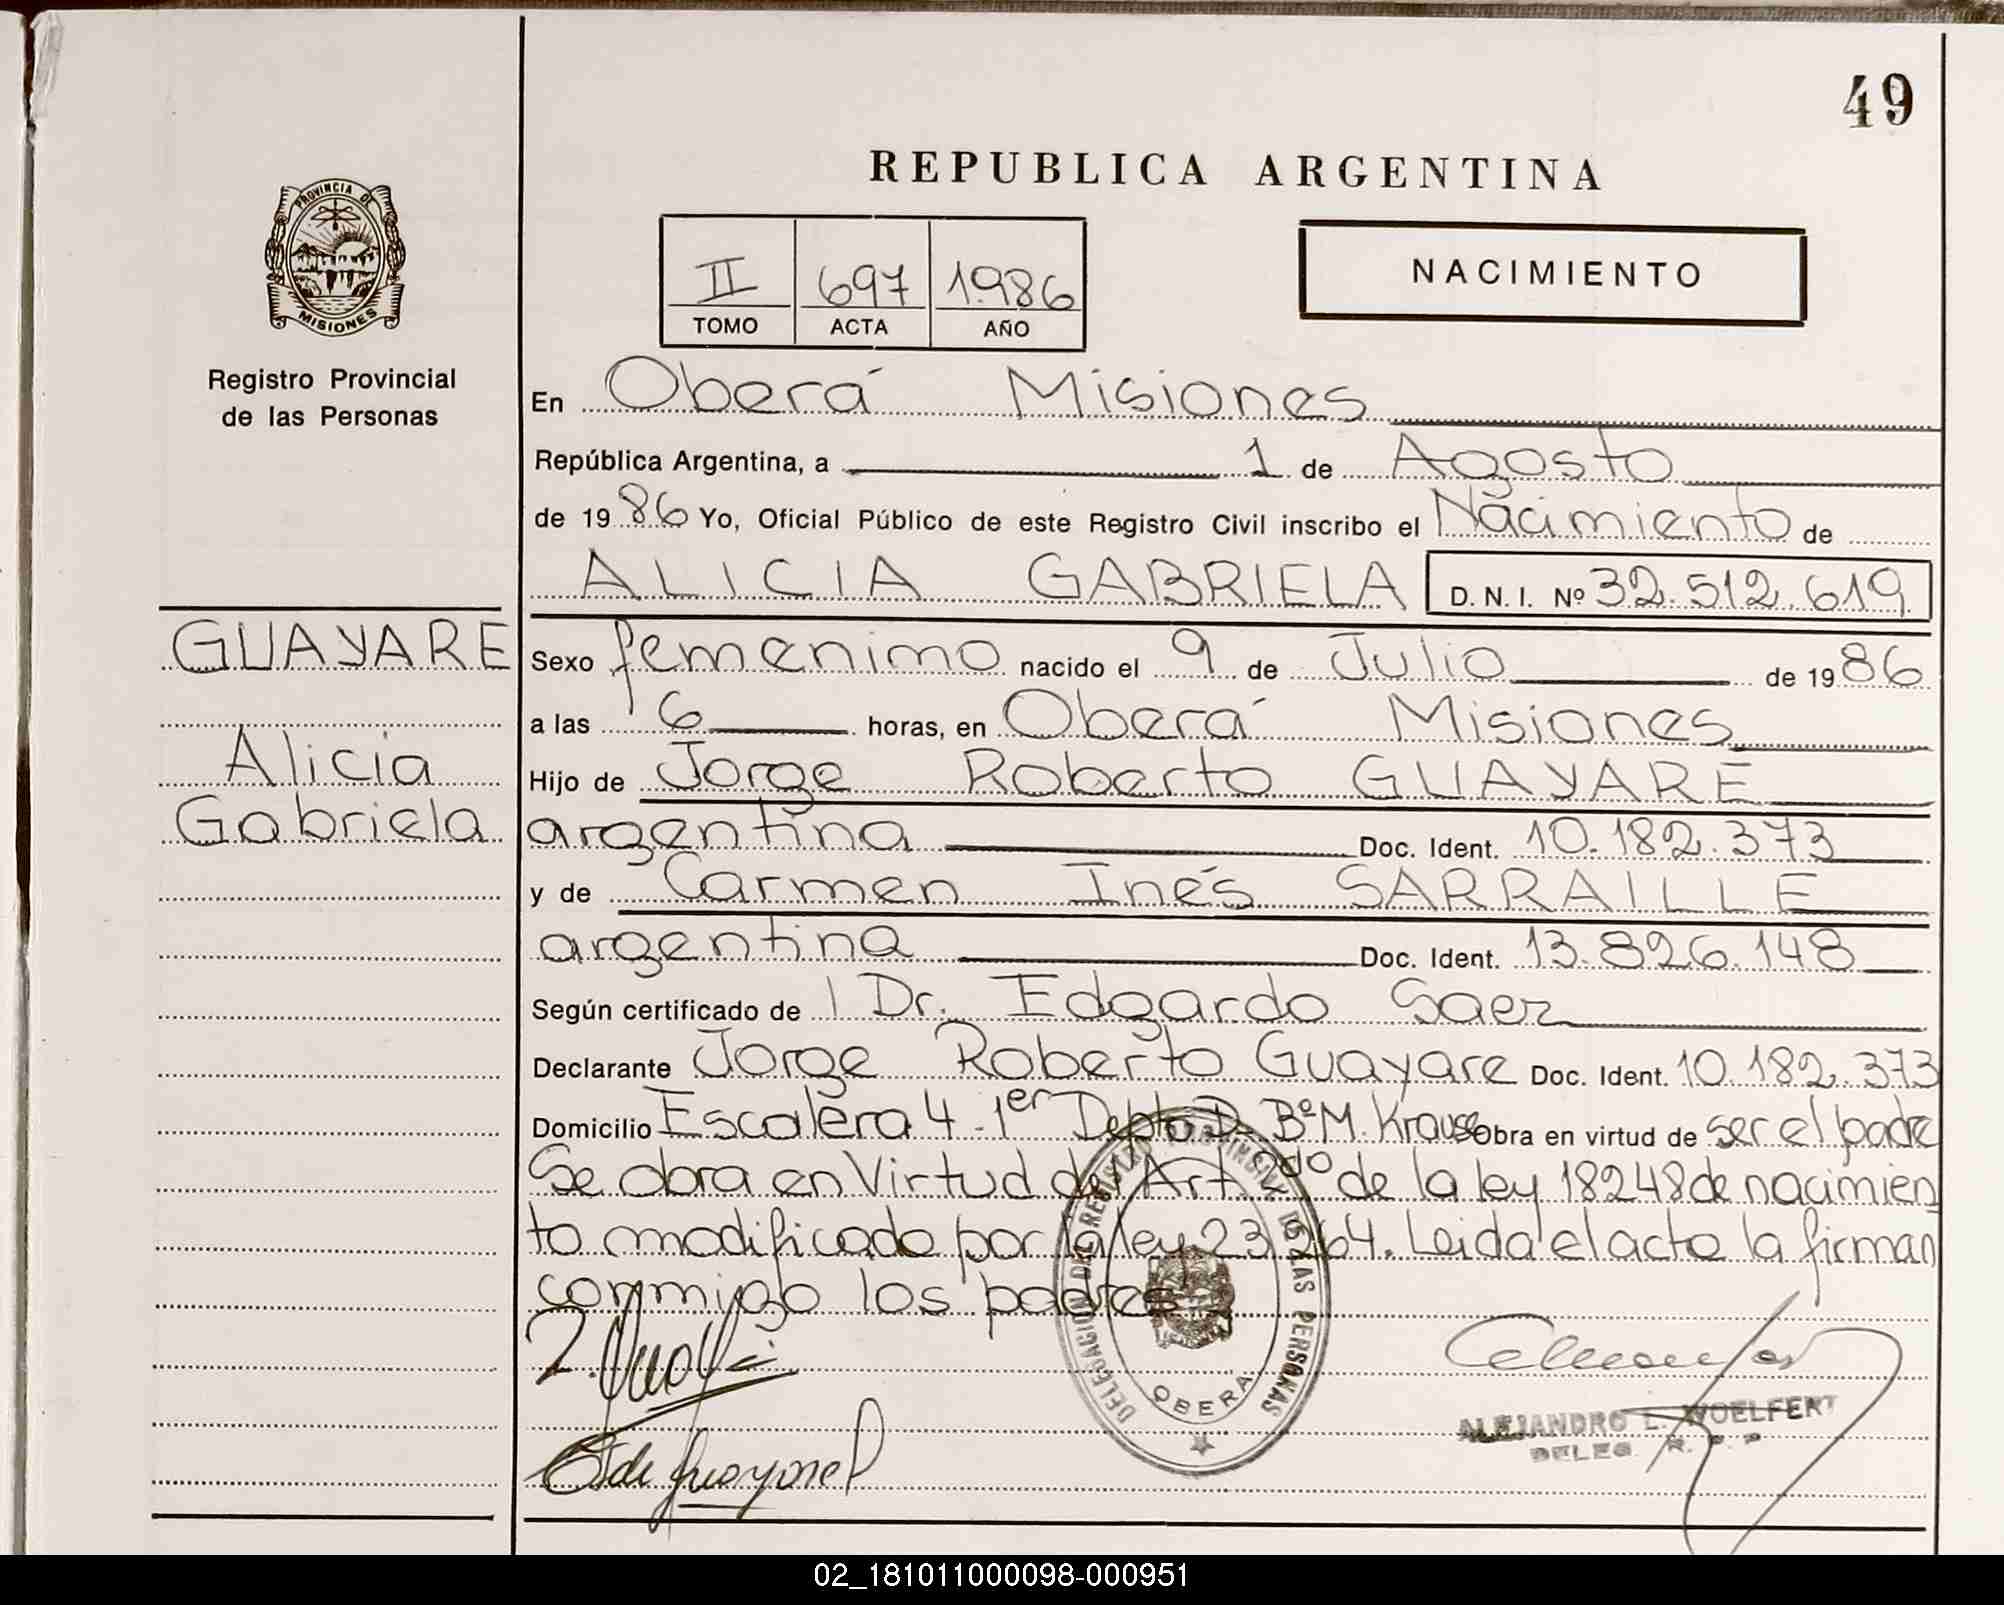 49
REPUBLICA ARGENTINA
PROVINCIA DE
MISIONES
Registro Provincial
de las Personas
II 697 1986
TOMO ACTA AÑO
NACIMIENTO
En Oberá Misiones
República Argentina, a 1 de Agosto
de 1986 Yo, Oficial Público de este Registro Civil inscribo el Nacimiento de
ALICIA GABRIELA D. N. I. Nº 32.512.619
GUAYARE
Alicia
Gabriela
Sexo femenino nacido el 9 de Julio de 1986
a las 6 horas, en Oberá Misiones
Hijo de Jorge Roberto GUAYARE
argentina Doc. Ident. 10.182.373
y de Carmen Inés SARRAILLE
argentina Doc. Ident. 13.826.148
Según certificado de Dr. Edgardo Saez
Declarante Jorge Roberto Guayare Doc. Ident. 10.182.373
Domicilio Escalera 4 1er Depto D. Bº M. Krause Obra en virtud de ser el padre
Se obra en Virtud del Art. 2do de la ley 18248 de nacimien
to modificado por la ley 23.264. Leida el acta la firman
conmigo los padres
DELEGACION DEL REGISTRO PROVINCIAL DE LAS PERSONAS
OBERA
ALEJANDRO L. WOELFERT
DELEG. R. P. P.
02_181011000098-000951